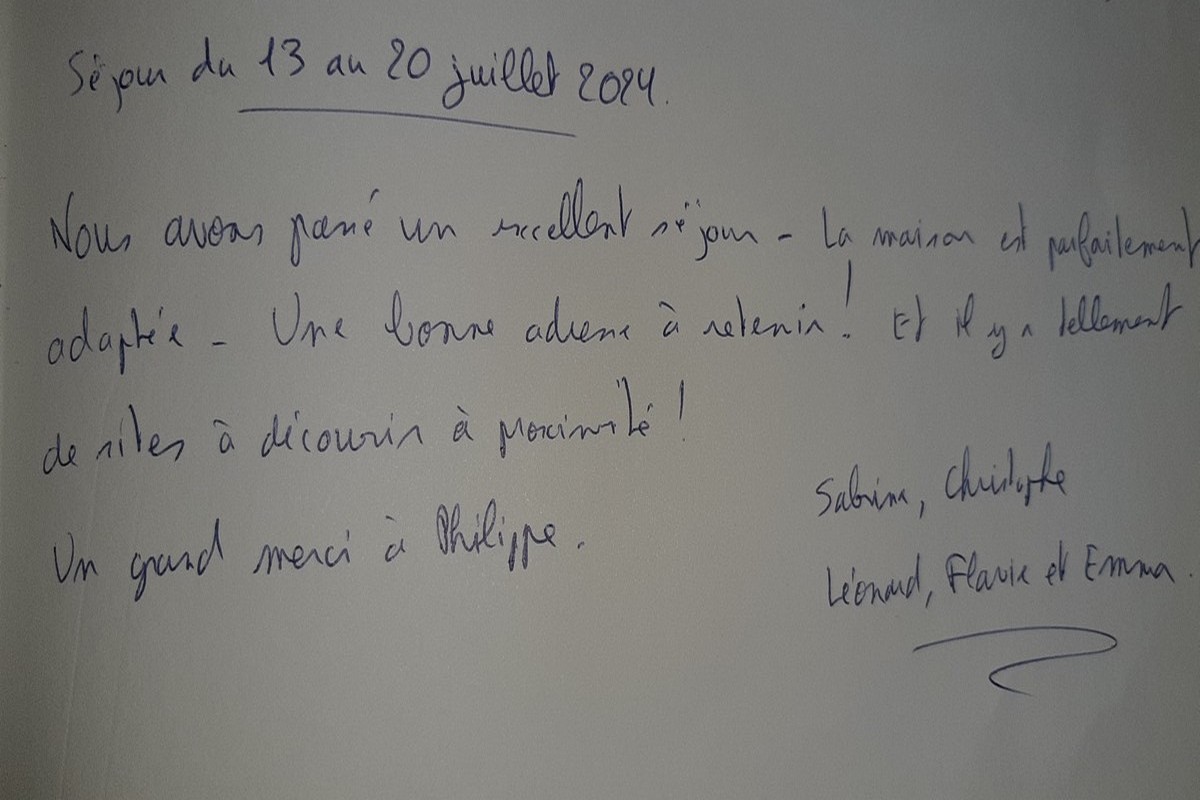 Séjour du 13 au 20 juillet 2024.
Nous avons passé un excellent séjour - La maison est parfaitement
adaptée - Une bonne adresse à retenir ! Et il y a tellement
de sites à découvrir à proximité !
Un grand merci à Philippe.
Sabrina, Christophe
Léonard, Flavie et Emma.